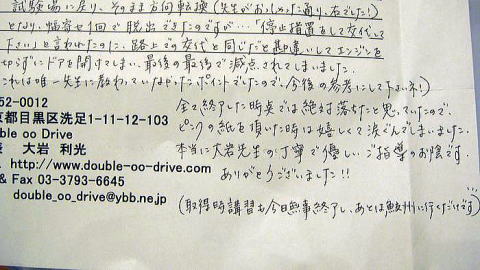 試験場に戻り、そのまま方向転換(先生がおっしゃった通り、右でした!)
となり、幅寄せ1回で脱出できたのですが…「停止措置をして交代して
下さい」と言われたのに、路上での交代と同じだと勘違いしてエンジンを
切らずにドアを開けてしまい、最後の最後で減点されてしまいました。
これは唯一先生に教わっていなかったポイントでしたので、今後の参考にして下さいネ!)
52-0012
京都目黒区洗足1-11-12-103
uble oo Drive
長 大岩 利光
http://www.double-oo-drive.com
& Fax 03-3793-6645
double_oo_drive@ybb.ne.jp
全て終了した時点では絶対落ちたと思っていたので、
ピンクの紙を頂いた時は嬉しくて涙ぐんでしまいました。
本当に大岩先生の丁寧で優しいご指導のお陰です。
ありがとうございました!!
(取得時講習も今日無事終了し、あとは鮫洲に行くだけです)